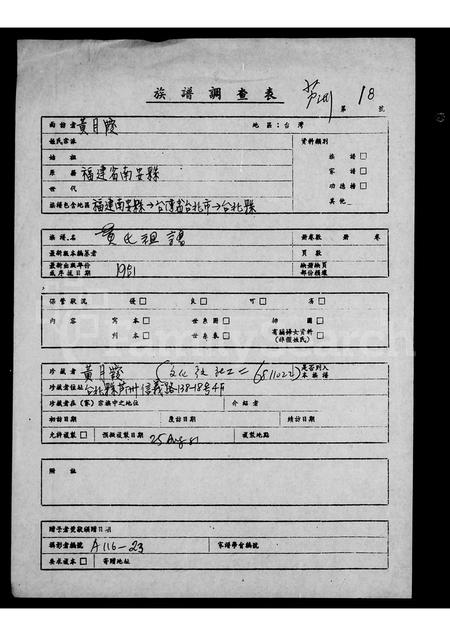 族譜調查表
第 18 號
面訪者 黃月 地區：台灣
姓氏宗派 資料類別
始祖 族譜□
原籍 福建省南安縣 家譜□
世代 功德榜□
族譜包含地區 福建南安縣→台灣省台北市→台北縣 其他
族譜名 黃氏祖譜 冊卷數 冊 卷
最新版本編纂者 頁數
最新出版年份或序跋日期 1951
保管狀況 優□ 良□ 可□ 劣□
內容 寫本□ 世系圖□ 插圖□ 有關婦女資料(非假姓氏)□
刊本□ 世系表□
珍藏者 黃月 是否列入本族譜
珍藏者住址 台北縣蘆洲信義路138-18號4F
珍藏者在(家)宗族中之地位 介紹者
初訪日期 度訪日期 續訪日期
允許複製□ 預擬複製日期 25 Aug 81 複製地點
附註
贈予者受款領贈日期
攝影者編號 A116-23 家譜學會編號
要求複本□ 寄贈地址